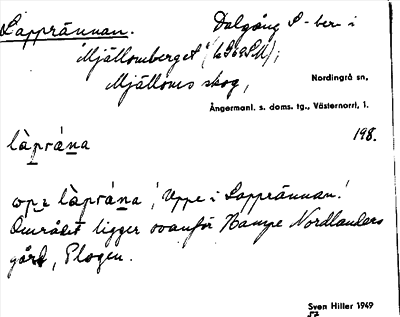 Lapprännan.
Dalgång S-ber i
Mjällomberget (
Mjälloms skog,
Nordingrå sn,
Ångermanl. s. doms. tg., Västernorrl. l.
198.
làprána
làprána 'Uppe i Lapprännan.'
Området ligger ovanför Hampe Nordlanders
gård, Plogen.
Sven Hiller 1949